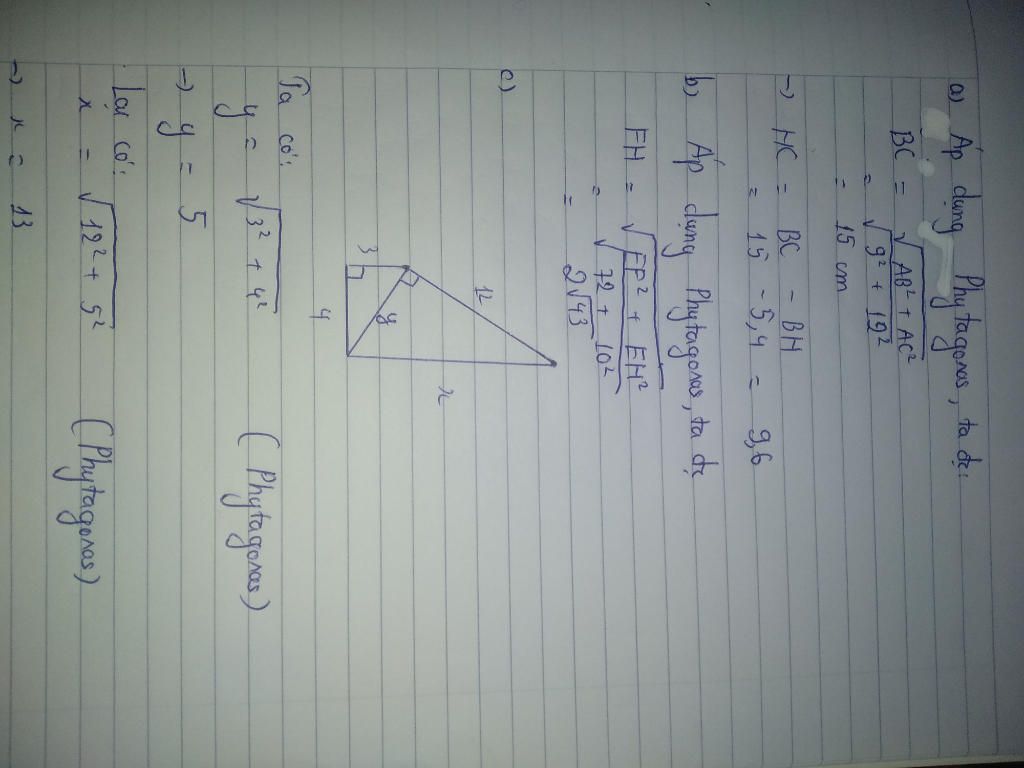 a) Áp dụng Phytagoras, ta đc:
BC = √AB² + AC²
= √9² + 12²
= 15 cm
→ HC = BC - BH
= 15 - 5,4 = 9,6
b) Áp dụng Phytagoras, ta đc
FH = √EF² + EH²
= √72 + 10²
= 2√43
c)
12
x
3
y
4
Ta có:
y = √3² + 4² (Phytagoras)
→ y = 5
Lại có:
x = √12² + 5² (Phytagoras)
→ x = 13